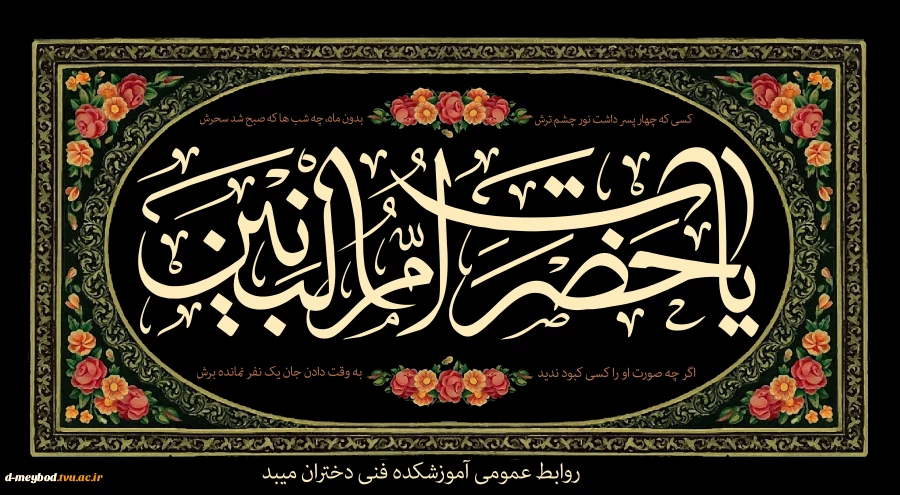 کسی که چهار پسر داشت نور چشم ترش
بدون ماه، چه شب ها که صبح شد سحرش
یا حضرت ام البنین
اگر چه صورت او را کسی کبود ندید
به وقت دادن جان یک نفر نمانده برش
روابط عمومی آموزشکده فنی دختران میبد
d-meybod.tvu.ac.ir